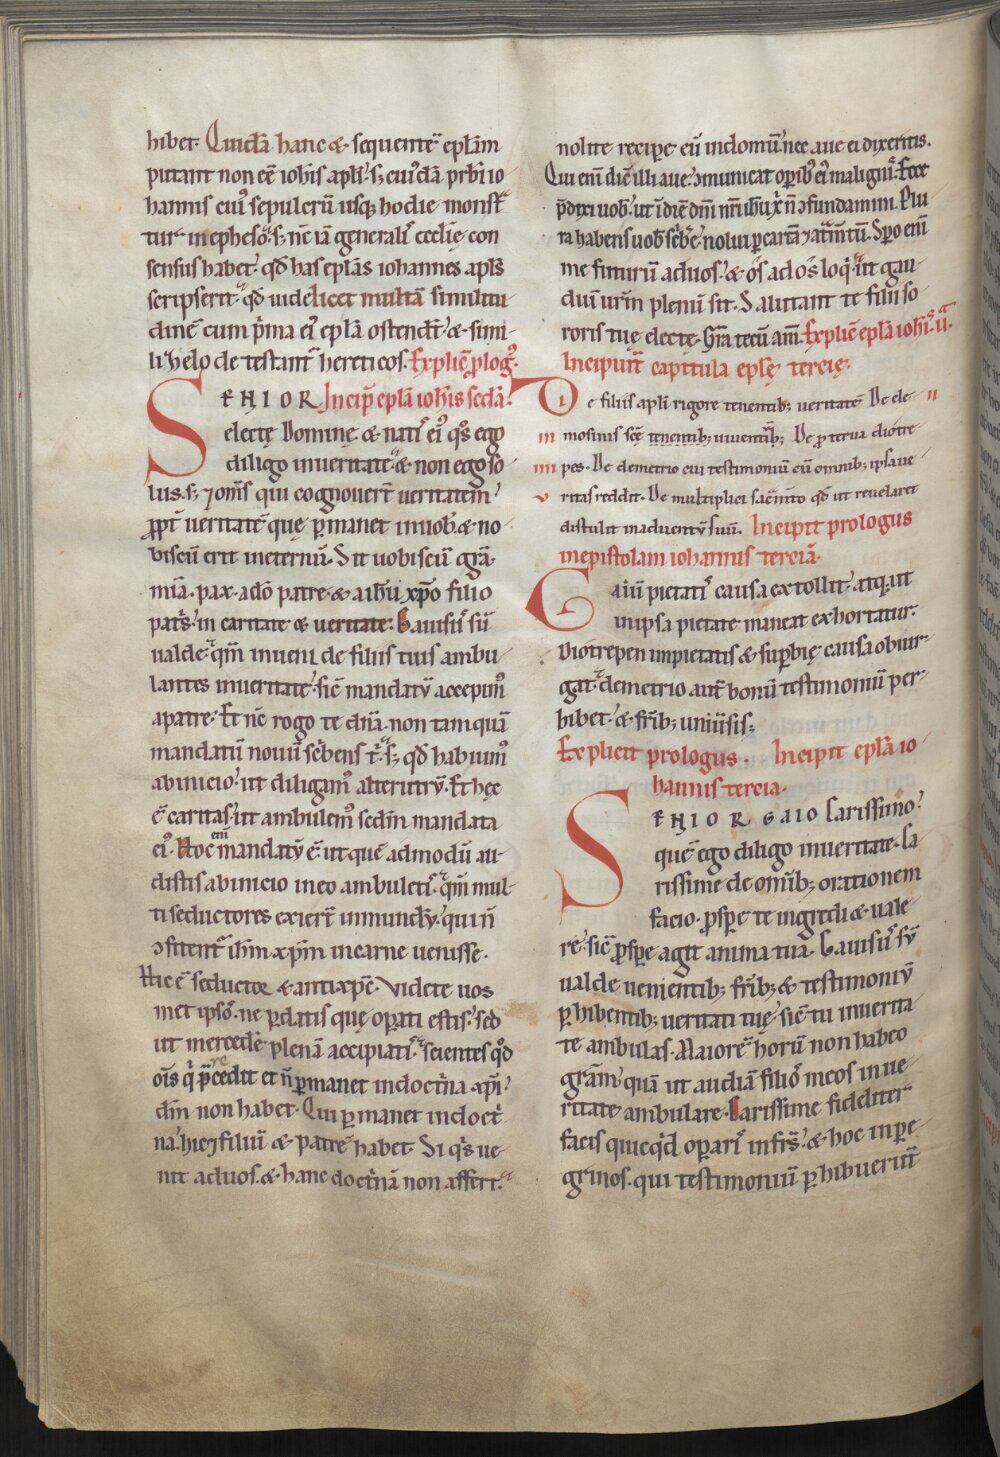 hibet. Quidā hanc & sequentē eplām
putant non eē iohis apłi. s; cuiꝰdā prbī io
hannis cuiꝰ sepulcrū usq; hodie monst̄
tur in epheso. s; nc̄ iā generalis ecclię con
sensus habet. qđ has eplās iohannes apłs
scripserit. qđ uidelicet multā similitu
dinē cum p̄ma eiꝰ eplā ostendit̄. & simi
li zelo detestant̄ hereticos. Explic̄ ꝓlogꝰ.
S ENIOR Incip̄ eplā iohis scđa.
electę Domine & natis eiꝰ qͦs ego
diligo in ueritate. & non ego so
lus. s; ⁊ om̄s qui cognouer̄t ueritatem.
ꝓpt̄ ueritatē que ꝑmanet in uob̄. & no
biscū erit ineternū. Sit uobiscū grā.
miā. pax. a dō patre. & a ihū xp̄o filio
patͥs. in caritate & ueritate. Gauisꝰ sū
ualde. qm̄ inueni de filiis tuis ambu
lantes in ueritate. sic̄ mandatū accepimꝰ
a patre. Et nc̄ rogo te dnā. non tamquā
mandatū nouū sc̄bens t̄. s; qđ habuimꝰ
ab inicio. ut diligamꝰ alterutrū. Et hęc
ē caritas. ut ambulemꝰ scđm mandata
eiꝰ. Hoc enī mandatū ē. ut quē admodū au
distis ab inicio in eo ambuletis. qm̄ mul
ti seductores exier̄t in mundū. qui n̄
ɔfitent̄ ihm̄ xpm̄ in carne uenisse.
Hic ē seductor & antixpc̄. Videte uos
met ipsos. ne ꝑdatis quę oꝑati estis. sed
ut mercedē plenā accipiatis. Scientes qđ
om̄s qͥ p̄cedit et n̄ ꝑmanet in doctͥna xpi.
dm̄ non habet. Qui ꝑmanet in doctͥ
na. hic ⁊ filiū & patrē habet. Si qͥs ue
nit ad uos. & hanc doctͥnā non affert.
nolite reciꝑe eū in domū. nec aue ei dixeritis.
Qui enī dic̄ illi aue. ɔmunicat oꝑibꝰ eiꝰ malignis. Ecce
p̄dixi uob̄. ut ī die dn̄i nr̄i ihū xͥ n̄ ɔfundamini. Plu
ra habens uob̄ sc̄be. nolui ꝑ cartā ⁊ atm̄tū. Sꝑo enī
me futurū ad uos. & os ad os loqͥ. ut gau
diū ur̄m plenū sit. Salutant te filii so
roris tuę electę. Grā tecū am̄. Explic̄ eplā iohis .ii.
Incipiunt̄ capitula eplę tercię.
De filiis apłi rigore tenentib; ueritatē. De ele ii
iii mosinis scę tenentib; uiuentib; De proterua diotre
iiii pes. De demetrio cui testimoniū cū omnib; ipsa ue
v ritas reddit. De multiplici sac̄mto qđ ut reuelaret
distulit in aduentū suū. Incipit prologus
in epistolam iohannis terciā.
Gaiū pietatis causa extollit. atq. ut
in ipsa pietate maneat exhortatur.
Diotrepen impietatis & suꝑbię causa obiur
gat. demetrio aut̄ bonū testimoniū per
hibet. & frīb; uniūsis;
Explicit prologus. Incipit eplā io
hannis tercia.
S ENIOR GAIO Carissimo.
quē ego diligo in ueritate. Ca
rissime de omīb; orationem
facio. ꝓsꝑe te ingredi & uale
re. sic̄ ꝓsꝑe agit anima tua. Gauisꝰ sū
ualde uenientib; frīb; & testimoniū
ꝑhibentib; ueritati tuę. sic̄ tu in uerita
te ambulas. Maiorē horū non habeo
grām. quā ut audiā filios meos in ue
ritate ambulare. Carissime fideliter
facis quicqͥd oꝑaris in frs̄. & hoc in pe
grinos. qui testimoniū ꝑhibuerunt̄